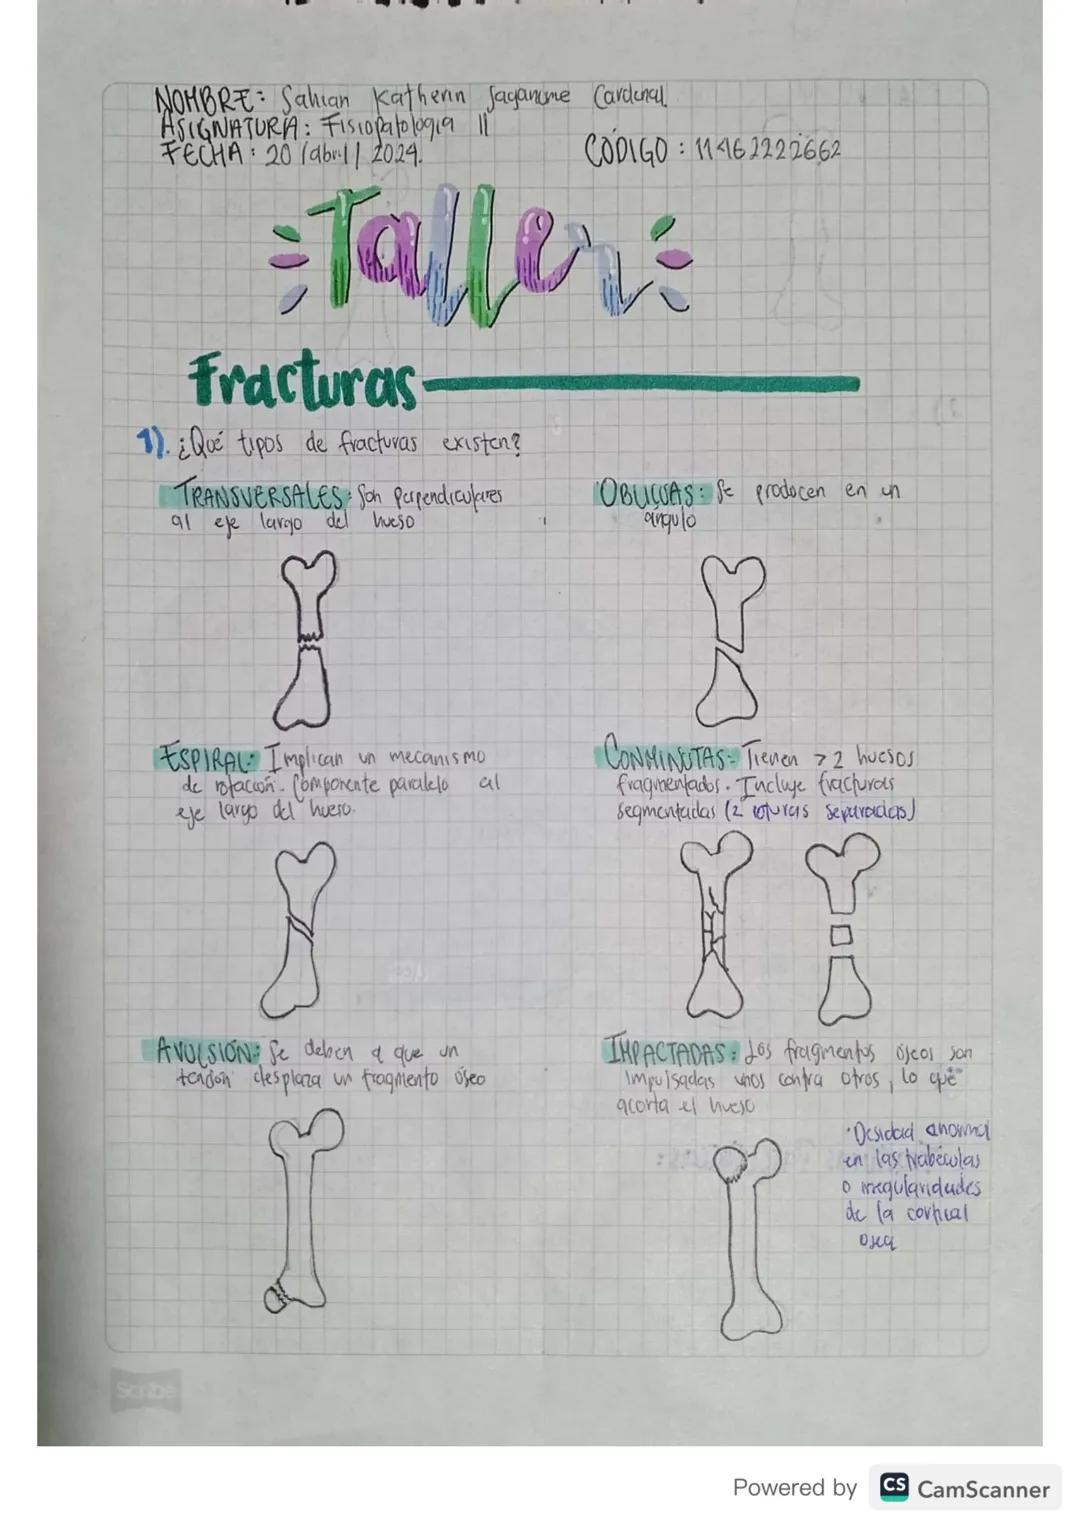 NOMBRE: Sahian Katherin Saganome Cardenal
ASIGNATURA: Fisiopatologia II
FECHA: 20 /abril/ 2024.
CÓDIGO: 11462222662
Taller
Fracturas
1). ¿Qué tipos de fracturas existen?
TRANSVERSALES: Son perpendiculares
al eje largo del hueso
OBLICUAS: Se producen en un
ángulo
ESPIRAL: Implican un mecanismo
de rotación. Componente paralelo al
eje largo del hueso.
CONMINUTAS: Tienen > 2 huesos
fragmentados. Incluye fracturas
segmentadas (2 roturas separadas)
AVULSIÓN: Se deben a que un
tendón desplaza un fragmento óseo
IMPACTADAS: Los fragmentos óseos son
impulsadas unos contra otros, lo que
acorta el hueso
·Desidad anormal
en las trabéculas
o irregularidades
de la cortical
osea
Scribe
Powered by CS CamScanner